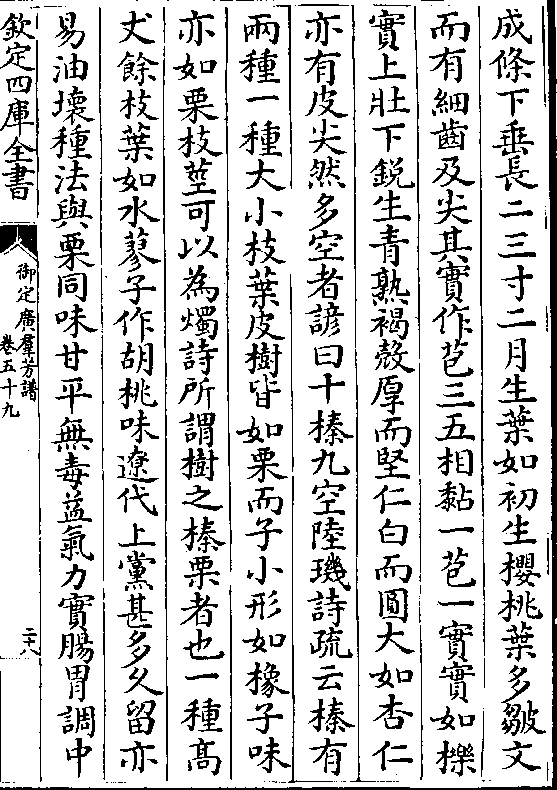 成條下垂長二三寸二月生葉如初生櫻桃葉多皺文
而有細齒及尖其實作苞三五相黏一苞一實實如櫟
實上壯下銳生青熟褐殼厚而堅仁白而圓大如杏仁
亦有皮尖然多空者諺曰十榛九空陸璣詩疏云榛有
兩種一種大小枝葉皮樹皆如栗而子小形如橡子味
亦如栗枝莖可以為燭詩所謂樹之榛栗者也一種高
丈餘枝葉如水蓼子作胡桃味遼代上黨甚多久留亦
易油壞種法與栗同味甘平無毒益氣力實腸胃調中
欽定四庫全書
御定廣羣芳譜
卷五十九
二十八